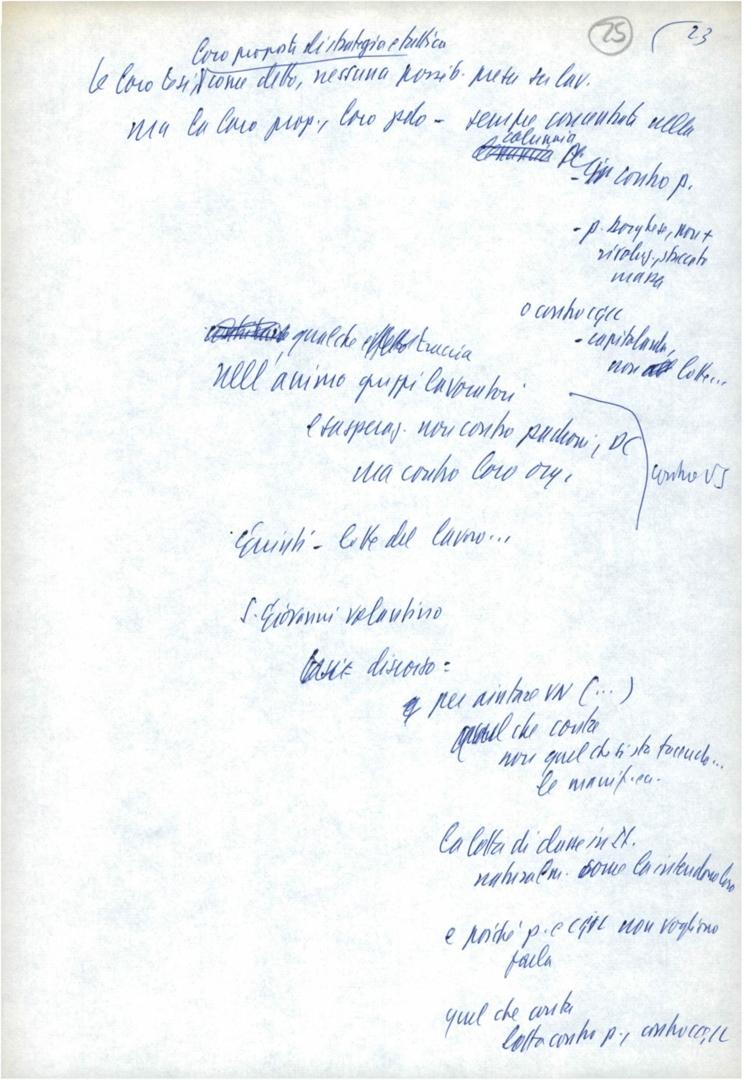 25 23
Loro proposte di strategia e tattica
le loro tesi, come detto, nessuna possib. presa su lav.
ma la loro prop., loro polo - sempre concentrata nella
calunnia
contro p.
- p. borghese, non +
rivoluz., staccato
massa
o contro CGIL
- capitolarda,
non lotte...
qualche effetto traccia
nell'animo gruppi lavoratori
esasperaz. non contro padroni, DC
ma contro loro org.
contro US
Quindi - lotte del lavoro...
S. Giovanni volantino
discorso =
per aiutare VN (...)
quel che conta
non quel che si sta facendo...
le manifest.
la lotta di classe in It.
naturalm. come la intendono loro
e poiché p. e CGIL non vogliono
farla
quel che conta
lotta contro p., contro CGIL